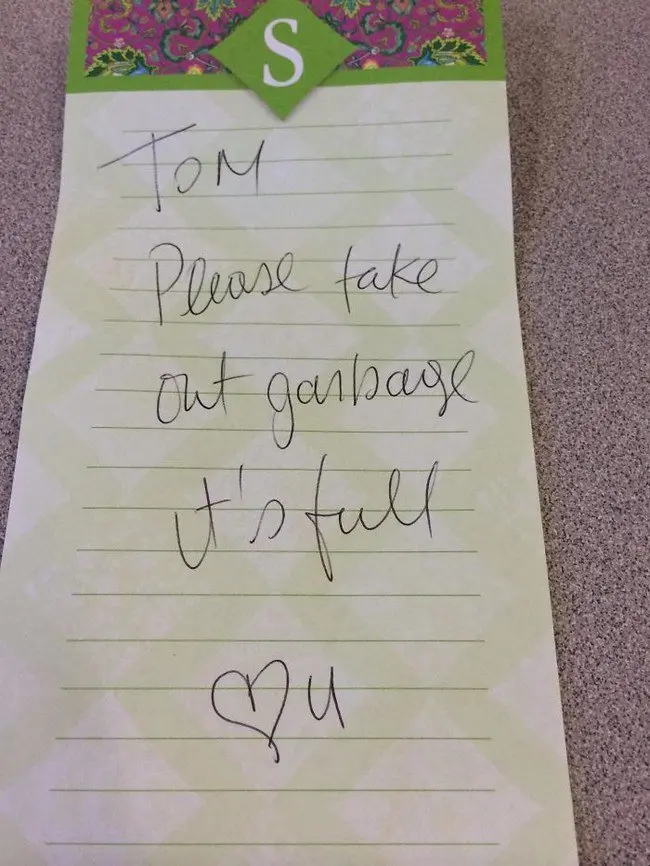 S
TOM
Please take
out garbage
it's full
♡ u